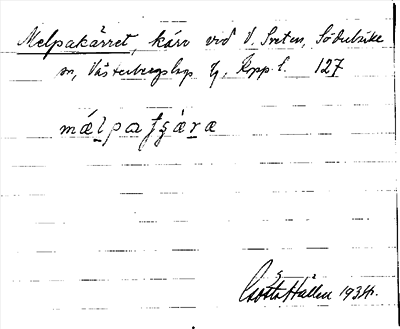 Melpakärret, kärr vid V. Sveten, Söderbärke
sn, Västerbergslags tg, Kopp. l. 127
mǽl̠pat̶ʂǽr̠a
Gösta Hallén 1934.